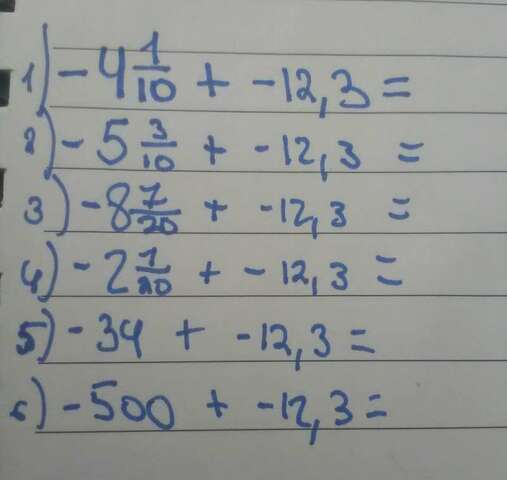 1) -4 1/10 + -12,3 =
2) -5 3/10 + -12,3 =
3) -8 7/20 + -12,3 =
4) -2 1/20 + -12,3 =
5) -34 + -12,3 =
6) -500 + -12,3 =